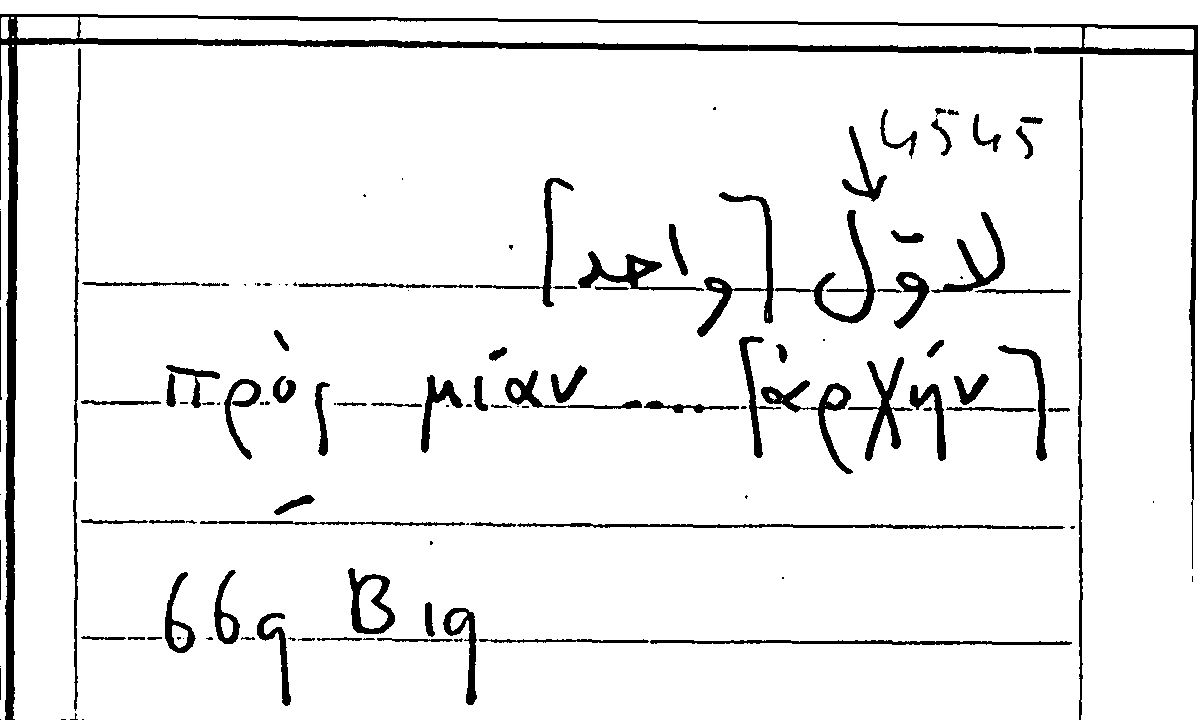 4545
لاوّل [واحد]
πρὸς μίαν ..... [ἀρχήν]
669 B 19